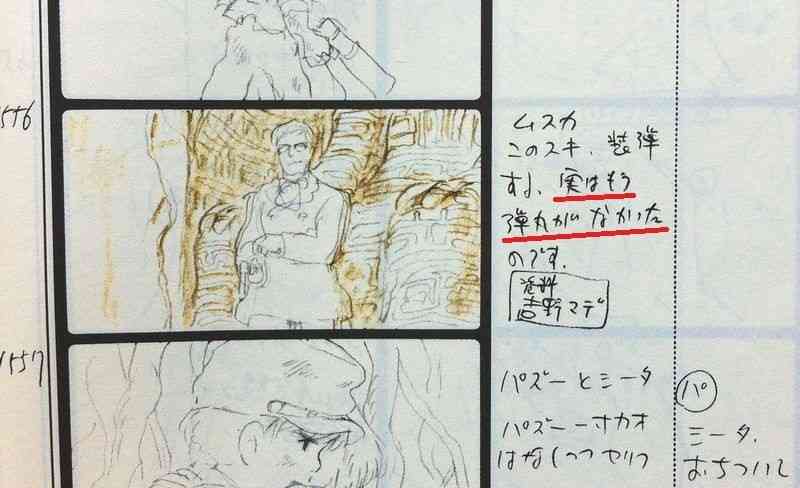 1556
ムスカ
このスキ、装弾
する、実はもう
弾丸がなかった
のです。
資料
吉野マデ
1557
パズーとシータ
パズー一寸カオ
はなしつつセリフ
パ
シータ、
おちついて